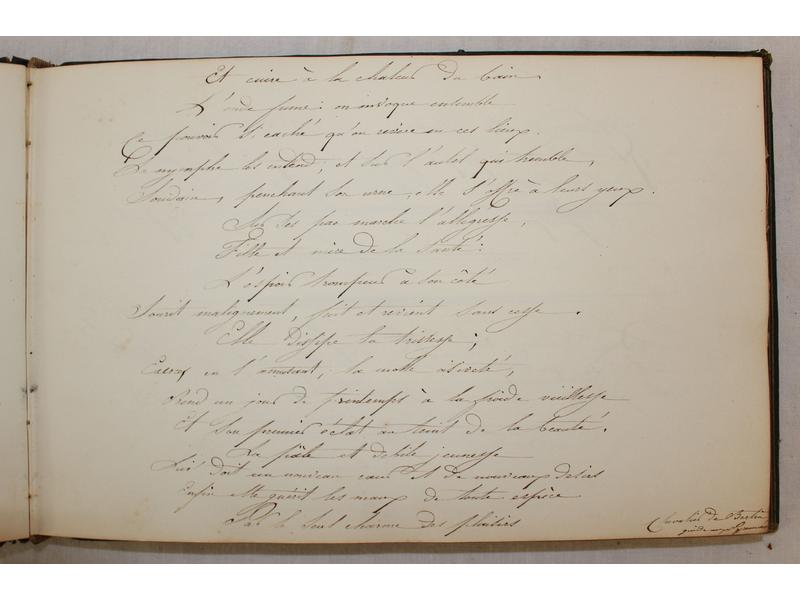 Et cuire à la chaleur du bain,
L'onde fume: on invoque ensemble
Ce pouvoir si caché qu'on révère en ces lieux.
La nymphe les entend; et sur l'autel qui tremble,
Soudain, penchant son urne, elle s'offre à leurs yeux.
Sur ses pas marche l'allégresse,
Fille et mère de la Santé:
L'espoir trompeur à son côté
Sourit malignement, fuit et revient sans cesse.
Elle dissipe la tristesse;
Exerce en l'amusant, la molle oisiveté,
Rend un jour de printemps à la froide vieillesse
Et son premier éclat au teint de la beauté.
La pâle et débile jeunesse
Lui doit un nouveau cœur et de nouveaux désirs
Enfin elle guérit les maux de toute espèce
Par le seul charme des plaisirs
Chevalier de Bertin
guide aux